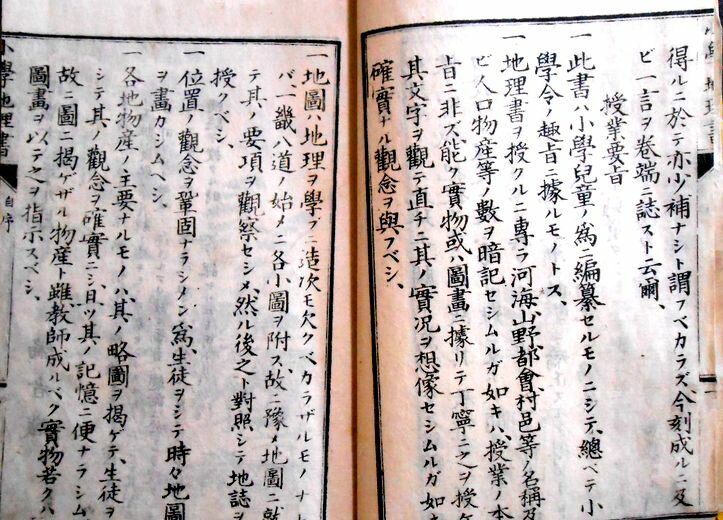 得ルニ於テ亦少補ナシト謂フベカラズ今刻成ルニ及
ビ一言ヲ卷端ニ誌スト云爾、
授業要旨
一 此書ハ小學兒童ノ爲ニ編纂セルモノニシテ、總ベテ小
學令ノ趣旨ニ據ルモノトス、
一 地理書ヲ授クルニ專ラ河海山野都會村邑等ノ名稱及
ビ人口物産等ノ數ヲ暗記セシムルガ如キハ、授業ノ本
旨ニ非ズ、能ク實物或ハ圖畫ニ據リテ丁寧ニ之ヲ授ケ
其文字ヲ觀テ直チニ其ノ實況ヲ想像セシムルガ如キ
確實ナル觀念ヲ與フベシ、
一 地圖ハ地理ヲ學ブニ造次モ欠クベカラザルモノナ
バ、一畿八道ノ始メニ各小圖ヲ附ス、故ニ豫メ地圖ニ就
テ其ノ要項ヲ觀察セシメ、然ル後之ト對照シテ地誌ヲ
授クベシ、
一 位置ノ觀念ヲ鞏固ナラシメン爲、生徒ヲシテ時々地圖
ヲ畫カシムベシ、
一 各地物産ノ主要ナルモノハ、其ノ略圖ヲ揭ゲテ、生徒ヲ
シテ其ノ觀念ヲ確實ニシ、且ツ其ノ記憶ニ便ナラシム
故ニ圖ニ揭ゲザル物産ト雖、教師成ルベク實物若クハ
圖畫ヲ以テ之ヲ指示スベシ、
小學地理書
自序